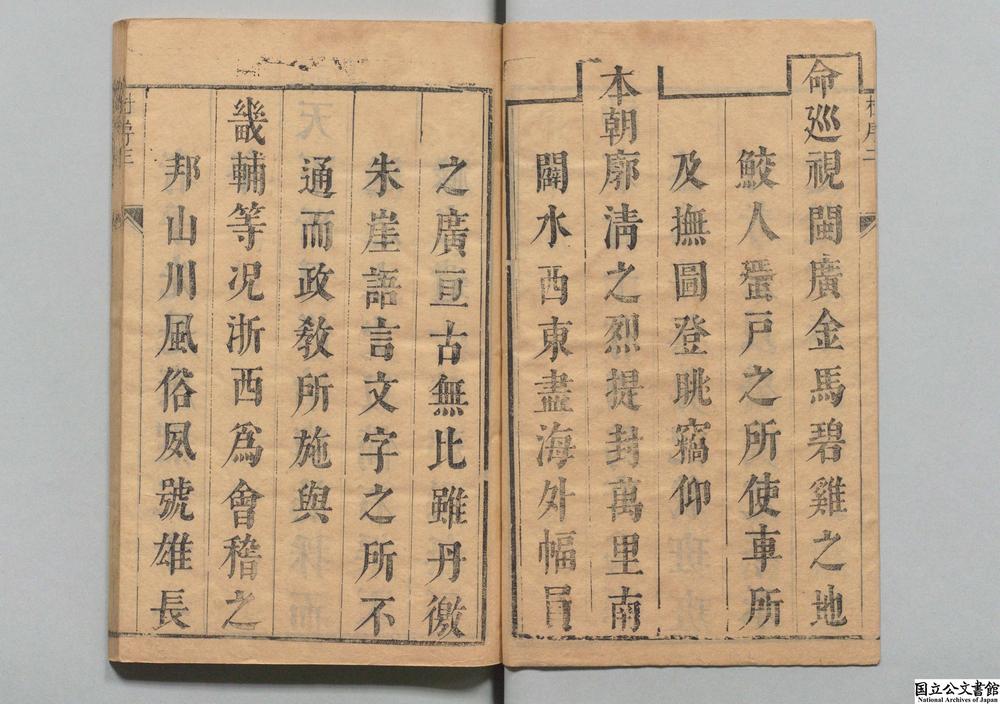 命巡視閩廣金馬碧雞之地
鮫人蜑戸之所使車所
及撫圖登眺竊仰
本朝廓清之烈提封萬里南
闢水西東盡海外幅員
之廣亘古無比雖丹徼
朱崖語言文字之所不
通而政教所施與
畿輔等况浙西爲會稽之
邦山川風俗夙號雄長
国立公文書館
National Archives of Japan